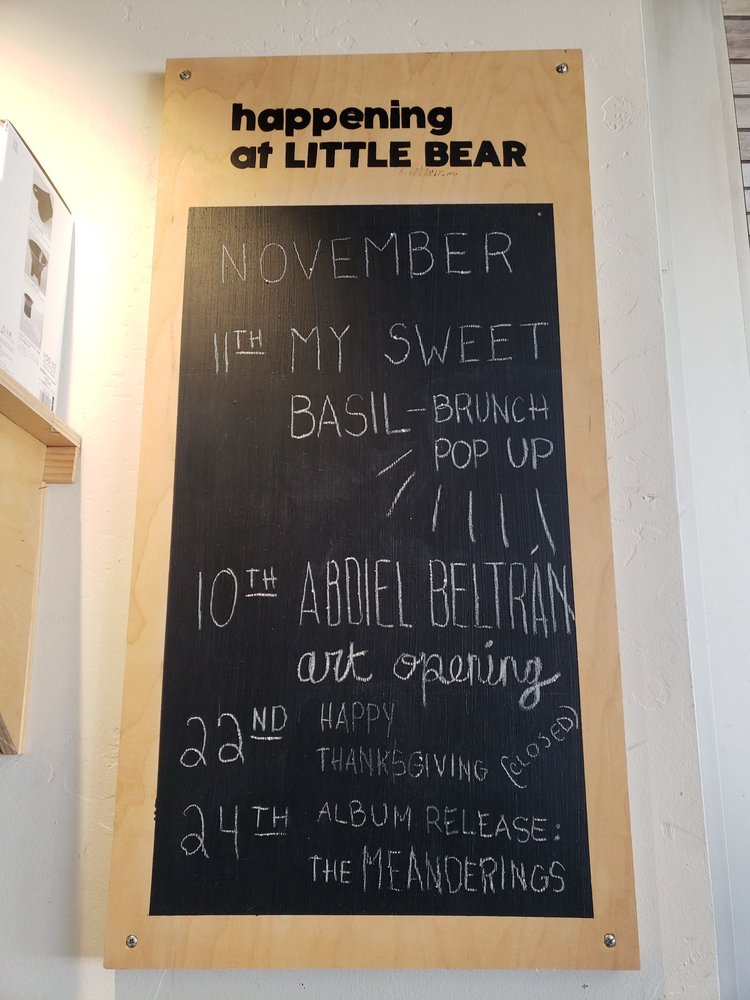 happening
at LITTLE BEAR
NOVEMBER
11TH MY SWEET
BASIL - BRUNCH
POP UP
10TH ABDIEL BELTRÁN
art opening
22ND HAPPY
THANKSGIVING (CLOSED)
24TH ALBUM RELEASE:
THE MEANDERINGS